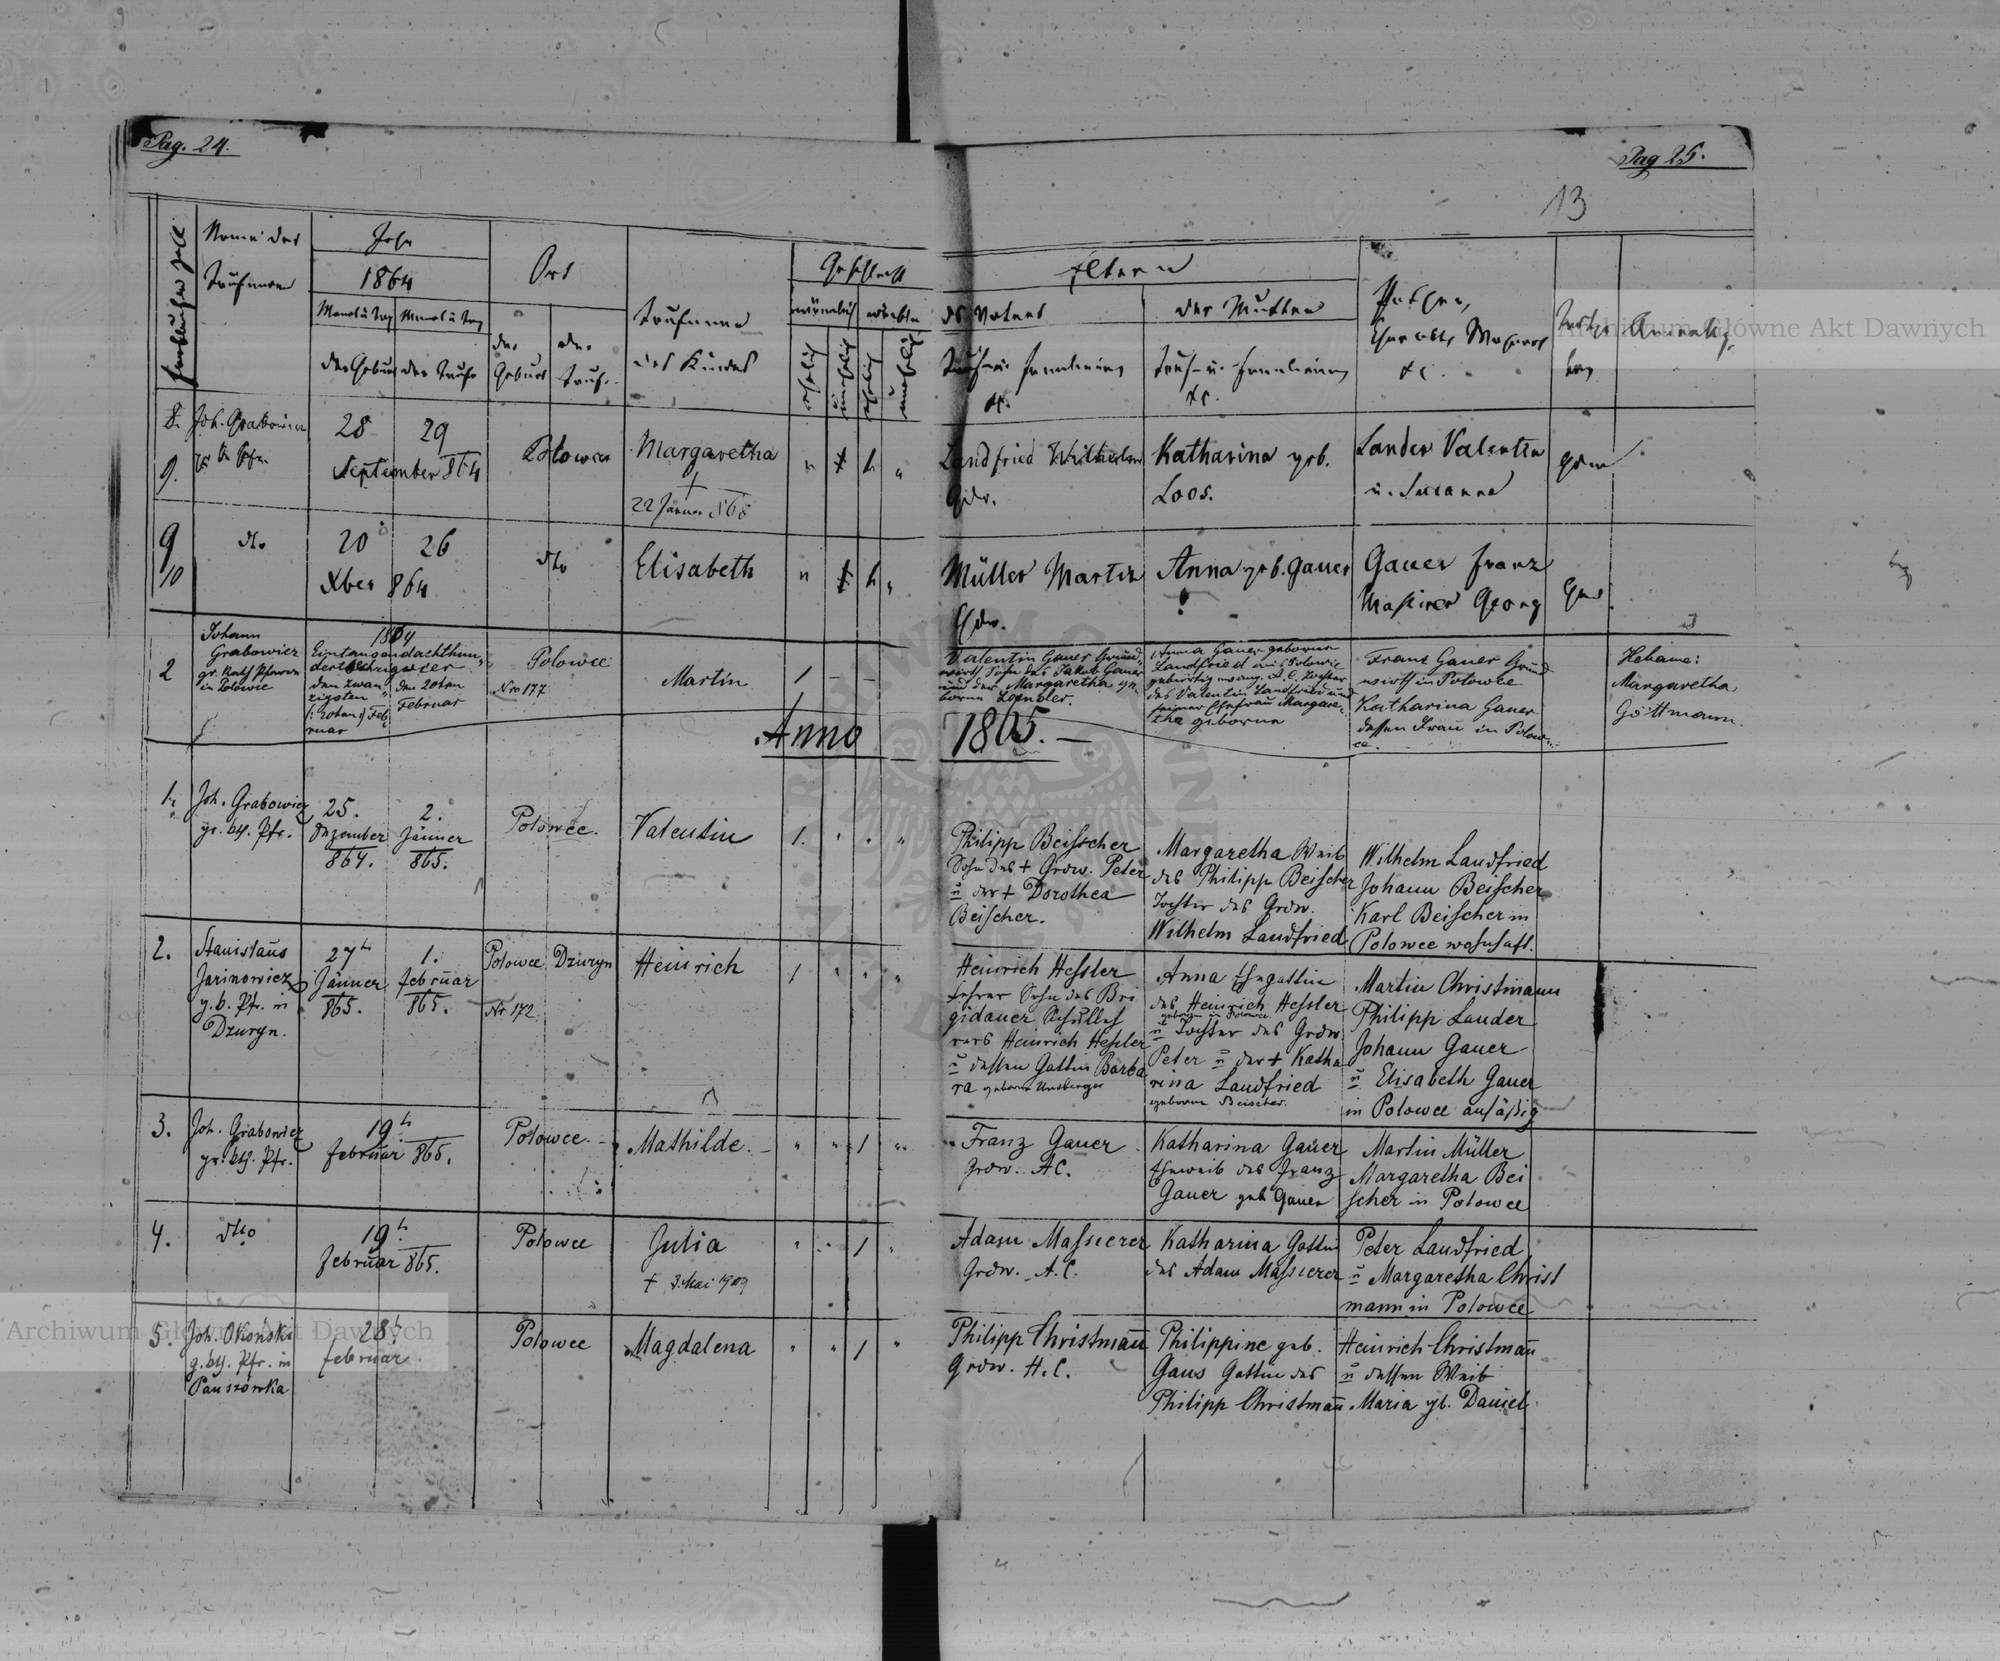 Pag. 24.
Pag 25.
13
Name des
Taufenden
Jahr
1864
Monat u Tag
Monat u Tag
der Geburt
der Taufe
Ort
der
Geburt
der
Taufe
Taufname
des Kindes
Geschlecht
männlich
weiblich
ehelich
unehelich
ehelich
unehelich
Eltern
des Vaters
Tauf- u. Familienname
etc.
der Mutter
Tauf- u. Familienname
etc.
Pathen,
etc.
8.
9.
Joh. Grabowicz
28
29
September 864
Polowce
Margaretha
+
22 Januar 868
Landfried Wilhelm
Gdw.
Katharina geb.
Loos.
Lander Valentin
u. Susanna
9
10
dto
20
26
Xber 864
dto
Elisabeth
Müller Martin
Gdw.
Anna geb. Gauer
Gauer Franz
Massirer Georg
2
Johann
Grabowicz
gr. Kath Pfarrer
in Polowce
1864
Eintausendachthun-
dertsechzigvier
den zwan-
zigsten
(: 20ten :) Feb-
ruar
den 20ten
Februar
Polowce
Nro 177
Martin
1 – – –
Valentin Gauer Grund-
wirth Sohn des Jakob Gauer
und der Margaretha ge-
borne
Anna Gauer geborene
Landfried in Polowce
gebürtig evang. A. C. Tochter
des Valentin Landfried und
seiner Ehefrau Margare-
tha geborne
Franz Gauer Grund-
wirth in Polowce
Katharina Gauer
dessen Frau in Polow-
ce.
Hebame:
Margaretha
Göttmann.
Anno 1865. –
1.
Joh. Grabowicz
gr. kth. Pfr.
25.
Dezember
864.
2.
Jänner
865.
Polowce.
Valentin
1.
Philipp Beisscher
Sohn des + Grdw. Peter
u der + Dorothea
Beischer.
Margaretha Weib
des Philipp Beischer
Tochter des Grdw.
Wilhelm Landfried
Wilhelm Landfried
Johann Beischer
Karl Beischer in
Polowce wohnhaft.
2.
Stanislaus
Jarinowicz
g. k. Pfr. in
Dzuryn.
27t
Jänner
865.
1.
Februar
865.
Polowce
Nr 172
Dzuryn
Heinrich
1
Heinrich Hessler
Lehrer Sohn des Bri
gidauer Schulleh
rers Heinrich Hessler
u dessen Gattin Barba
ra geborne Umsberger
Anna Ehegattin
des Heinrich Hessler
geboren in Polowce
u Tochter des Grdw.
Peter u der + Katha
rina Landfried
geborne Beischer.
Martin Christmann
Philipp Lander
Johann Gauer
u Elisabeth Gauer
in Polowce ansäßig
3.
Joh. Grabowicz
gr. kth. Pfr.
19t
Februar 865.
Polowce.
Mathilde.
1
Franz Gauer
Grdw. A C.
Katharina Gauer
Eheweib des Franz
Gauer geb Gauer
Martin Müller
Margaretha Bei
scher in Polowce
4.
dtto
19t
Februar 865.
Polowce
Julia
+ 3. Mai 1909
1
Adam Massierer
Grdw. A. C.
Katharina Gattin
des Adam Massierer
Peter Landfried
u Margaretha Christ
mann in Polowce
5.
Joh. Okonski
g. kth. Pfr. in
Pauszówka
28t
Februar
Polowce
Magdalena
1
Philipp Christmañ
Grdw. H. C.
Philippine geb.
Gaus Gattin des
Philipp Christmañ
Heinrich Christmañ
u dessen Weib
Maria gb. Daniel
Archiwum Główne Akt Dawnych
Archiwum Główne Akt Dawnych